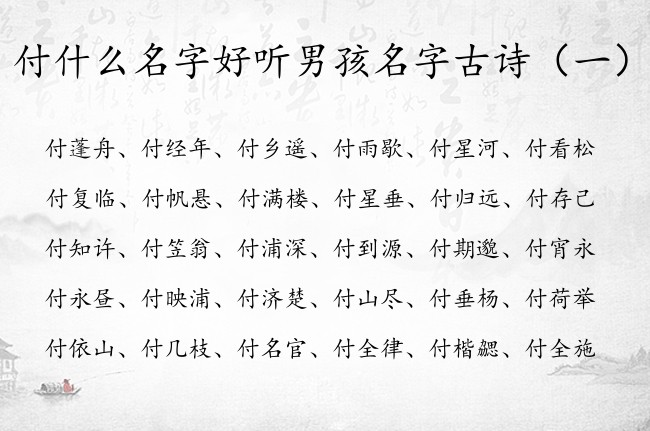 付什么名字好听男孩名字古诗（一）
付蓬舟、付经年、付乡遥、付雨歇、付星河、付看松
付复临、付帆悬、付满楼、付星垂、付归远、付存己
付知许、付笠翁、付浦深、付到源、付期邈、付宵永
付永昼、付映浦、付济楚、付山尽、付垂杨、付荷举
付依山、付几枝、付名官、付全律、付楷勰、付全施